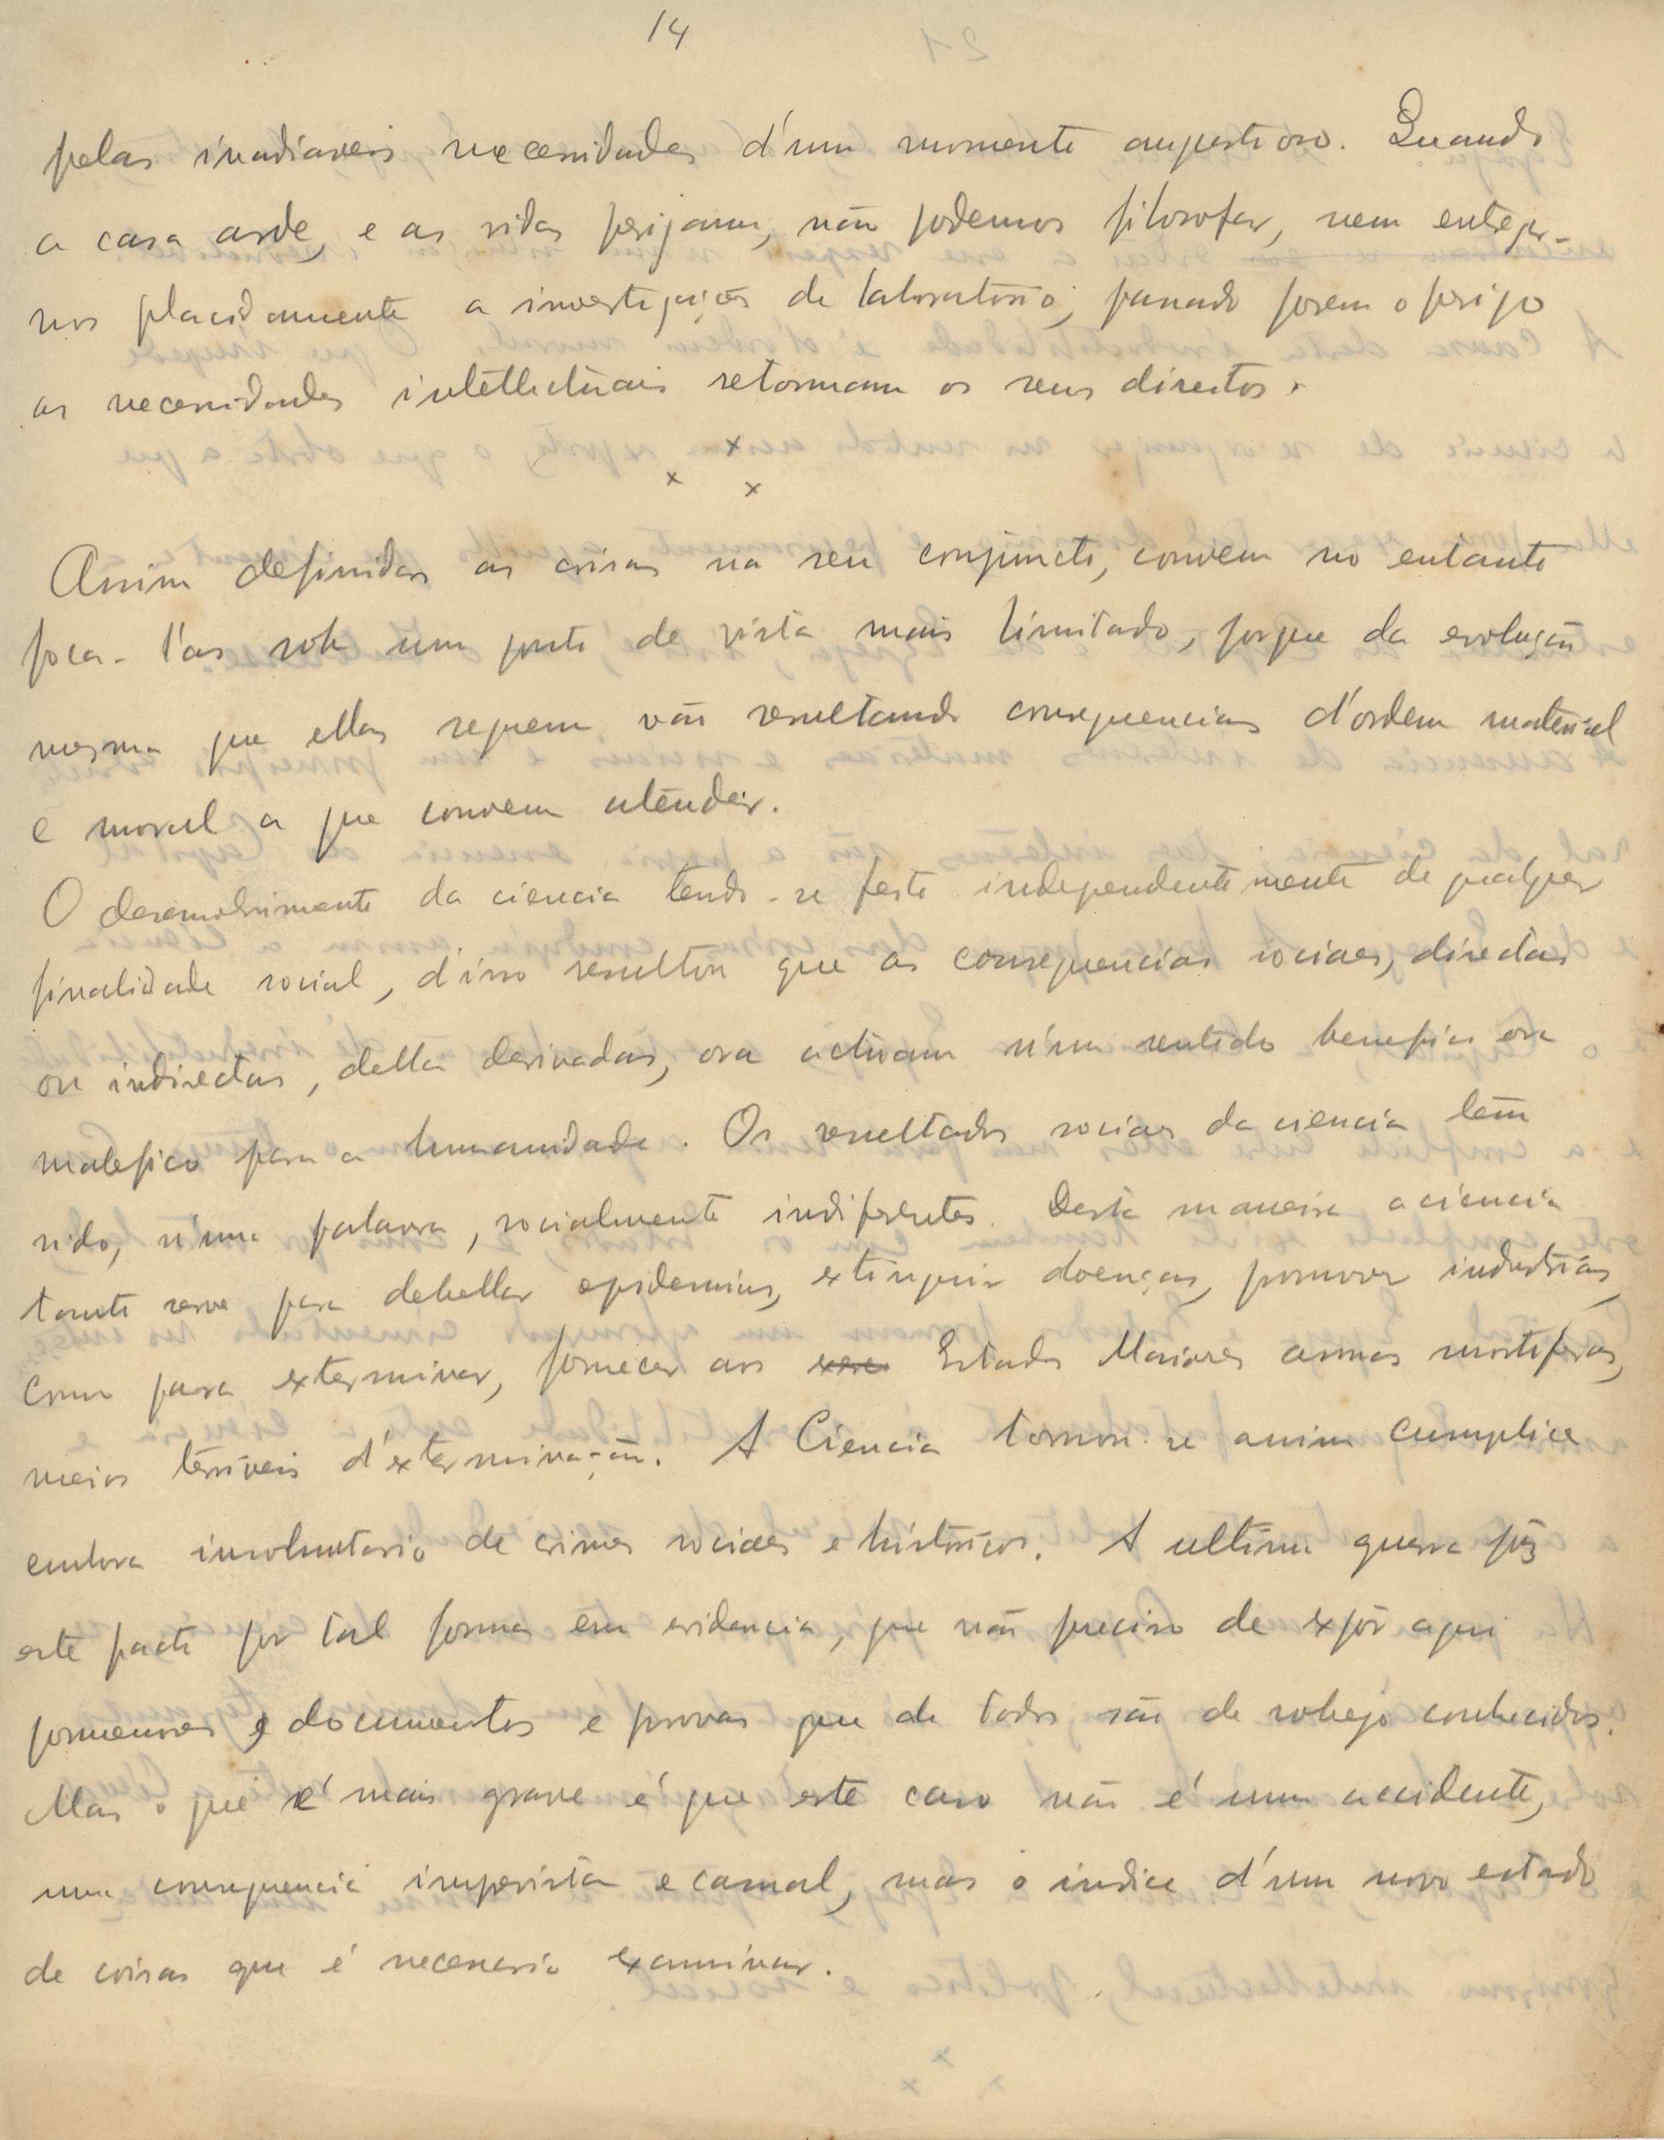 14
pelas inadiaveis necessidades d'um momento angustioso. Quando
a casa arde, e as vidas perigam, não podemos filosofar, nem entregar-
nos placidamente a investigações de laboratorio; passado porem o perigo
as necessidades intellectuais retomam os seus direitos.
x
x x
Assim definidas as coisas no seu conjuncto, convem no entanto
foca-l'as sob um ponto de vista mais limitado, porque da evolução
mesma que ellas seguem vão resultando consequencias d'ordem material
e moral a que convem atender.
O desenvolvimento da ciencia tendo-se feito independentemente de qualquer
finalidade social, d'isso resultou que as consequencias sociaes, directas
ou indirectas, della derivadas, ora actuam n'um sentido benefico ora
malefico para a humanidade. Os resultados sociaes da ciencia têm
sido, n'uma palavra, socialmente indiferentes. Desta maneira a ciencia
tanto serve para debellar epidemias, extinguir doenças, promover industrias,
como para exterminar, fornecer aos Estados Maiores armas mortiferas,
meios terriveis d'exterminação. A Ciencia tornou-se assim cumplice
embora involuntario de crimes sociaes e historicos. A ultima guerra pôz
este facto por tal forma em evidencia, que não preciso de expôr aqui
pormenores e documentos e provas que de todos são de sobejo conhecidos.
Mas o que é mais grave é que este caso não é um accidente,
uma consequencia imprevista e casual, mas o indice d'um novo estado
de coisas que é necessario examinar.